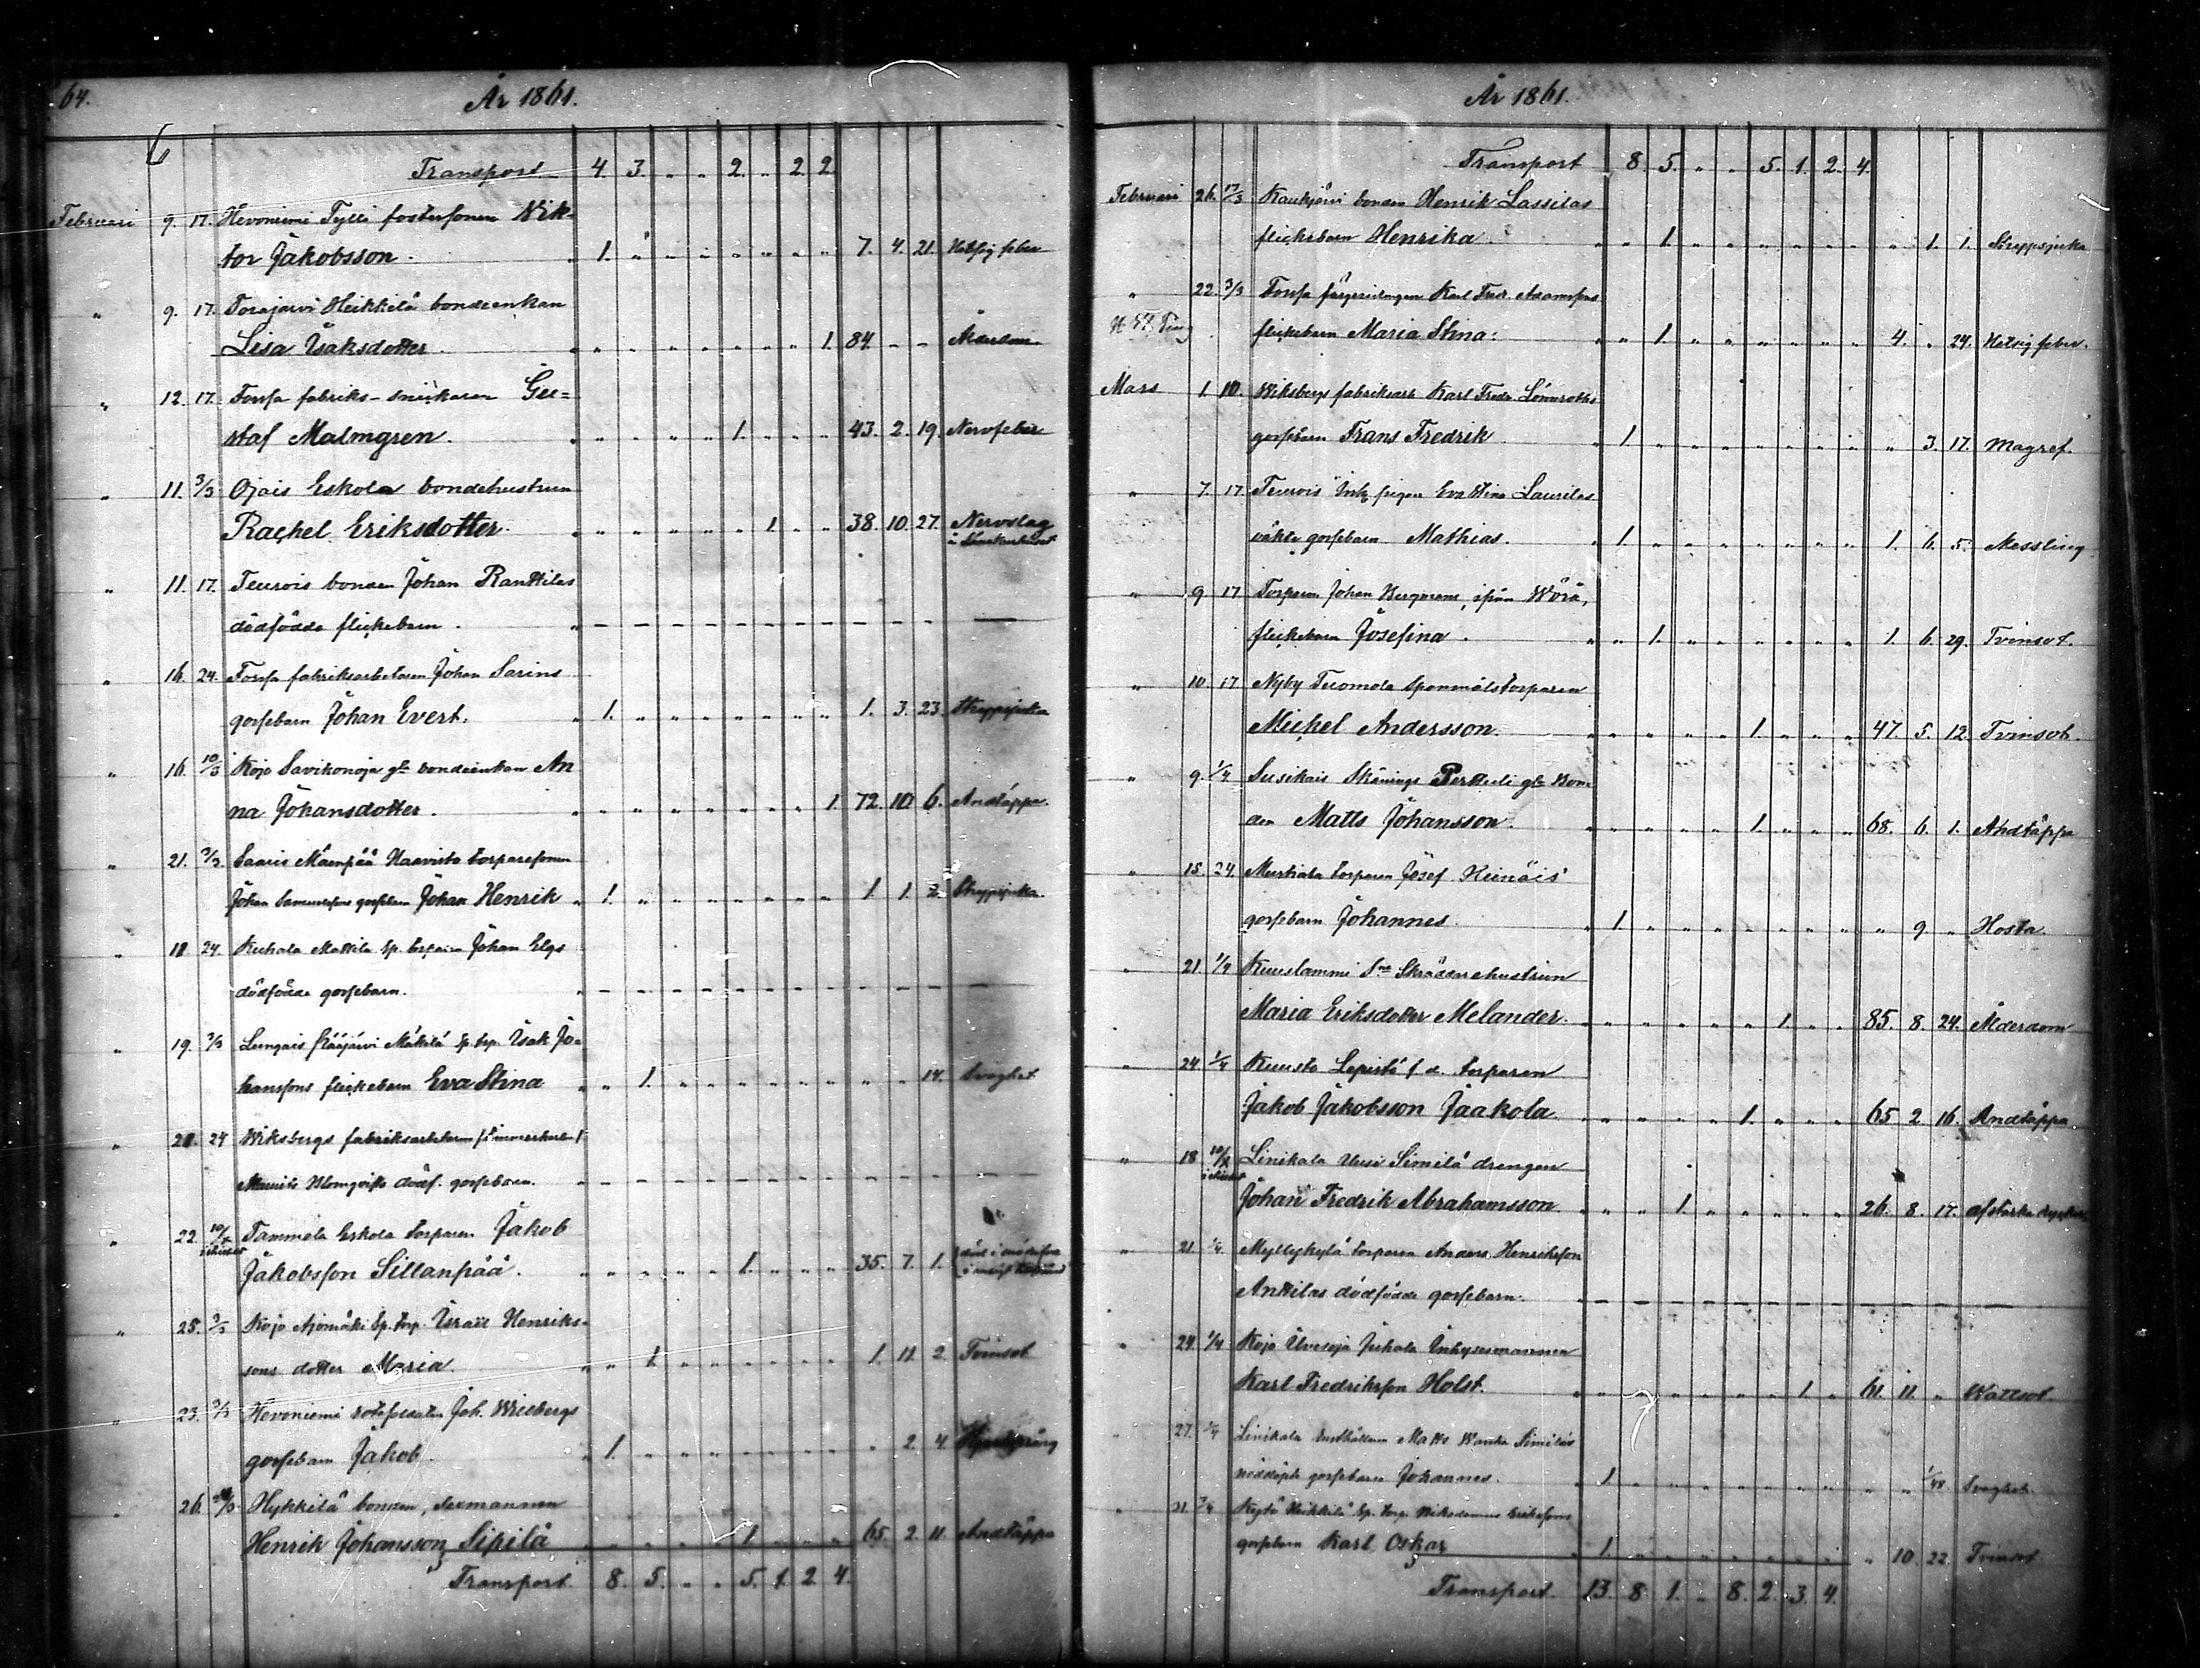 64.
År 1861.
Transport 4. 3. " " 2. " 2. 2
Februari 9. 17. Hevoniemi Tylli fostersonen Nik-
tor Jakobsson. " 1. " " " " " " " 7. 4. 21. Hetsig feber
" 9. 17. Torajärvi Heikkilä bondeenkan
Lisa Isaksdotter. " " " " " " " 1. 84. - - Ålderdom
" 12. 17. Forssa fabriks-snickaren Gu=
staf Malmgren. " " " " 1. " " " 43. 2. 19. Nervfeber
" 11. 3/3 Ojais Eskola bondehustrun
Rachel Eriksdotter. " " " " " 1. " " 38. 10. 27. Nervslag
" 11. 17. Teurois bonden Johan Ranttilas
dödfödde flickebarn.
" 16. 24. Forssa fabriksarbetaren Johan Sarins
gossebarn Johan Evert. " 1. " " " " " " " 1. 3. 23. Strypsjuka
" 16. 10/3 Kojo Savikonoja gl. bondeenkan An
na Johansdotter. " " " " " " " 1. 72. 10. 6. Andtäppa.
" 21. 3/3. Saaris Mäenpää Haavisto torparesonen
Johan Samuelssons gossebarn Johan Henrik " 1. " " " " " " " 1. 1. 2. Strypsjuka
" 18 24. Kuhala Mattila sp. torparen Johan Elgs
dödfödde gossebarn.
" 19. 3/3 Lungais Kääjärvi Mäkilä sp. torp. Isak Jo-
hanssons flickebarn Eva Stina " " 1. " " " " " " " " 14. Svaghet
" 24 Wiksbergs fabriksarbetaren
Blomqvists dödf. gossebarn.
" 22. 10/ Tammela Eskola torparen Jakob
Jakobsson Sillanpää. " " " " 1. " " " 35. 7. 1.
" 25. 3/3 Kojo Ajomäki sp. torp. Israel Henriks-
sons dotter Maria " " 1. " " " " " " 1. 11. 2. Tvinsot
" 23. 3/3 Hevoniemi rotesoldaten Joh. Wilebergs
gossebarn Jakob. " 1. " " " " " " " " 2. 4.
" 26. Hykkilä bonden, sexmannen
Henrik Johansson Sipilä " " " " 1. " " " 65. 2. 11. Andtäppa
Transport 8. 5. " " 5. 1. 2. 4.
År 1861.
Transport 8. 5. " " 5. 1. 2. 4.
Februari 26. 17/3 Kaukjärvi bonden Henrik Lassilas
flickebarn Henrika. " " 1. " " " " " " " 1. 1. Strypsjuka
" 22. 3/3 Forssa färgeridrängen Karl Fredr. Adamssons
flickebarn Maria Stina. " " 1. " " " " " " 4. " 24. Hetsig feber.
Mars 1. 10. Wiksbergs fabriksarb. Karl Fredr. Lönnroths
gossebarn Frans Fredrik " 1. " " " " " " " " 3. 17. Magref.
" 7. 17 Teurois Inh. pigan Eva Stina Laurilas
oäkta gossebarn Mathias. " 1. " " " " " " " 1. 6. 5. Messling
" 9 17 Torparen Johan Bergmans, ifrån Wörå,
flickebarn Josefina. " " 1. " " " " " " 1. 6. 29. Tvinsot.
" 10 17 Nyby Tuomola Spanmålstorparen
Mickel Andersson. " " " " 1. " " " 47. 5. 12. Tvinsot
" 9. 1/4 Susikais Skånings Perttuli gl. Bon-
den Matts Johansson. " " " " 1. " " " 68. 6. 1. Andtäppa
" 15. 24. Mustiala torparen Josef Heinäis
gossebarn Johannes. " 1. " " " " " " " " 9. " Hosta.
" 21 1/4 Kuuslammi Skräddarehustrun
Maria Eriksdotter Melander. " " " " " 1. " " 85. 8. 24. Ålderdom
" 24 1/4 Kuusto Lepistö f. d. torparen
Jakob Jakobsson Jaakola " " " " 1. " " " 65 2 16. Andtäppa
" 18 10/ Linikala Uusi Similä drengen
Johan Fredrik Abrahamsson " " " 1. " " " " 26. 8. 17. af starka drycker
" 21 1/4 Myllykylä torparen Anders Henriksson
Anttilas dödfödde gossebarn.
" 24. 1/4 Kojo Juhola Inhysesmannen
Karl Fredriksson Holst. " " " " " " 1. " 61. 11. " Wattsot.
" 27. 1/4 Linikala Matts Similäs
nöddöpte gossebarn Johannes. " 1. " " " " " " " " " 1/48 Svaghet.
" Heikkilä sp. torp. Nikodemus Erikssons
gossebarn Karl Oskar " 1. " " " " " " " " 10 22. Tvinsot
Transport. 13. 8. 1. " 8. 2. 3. 4.